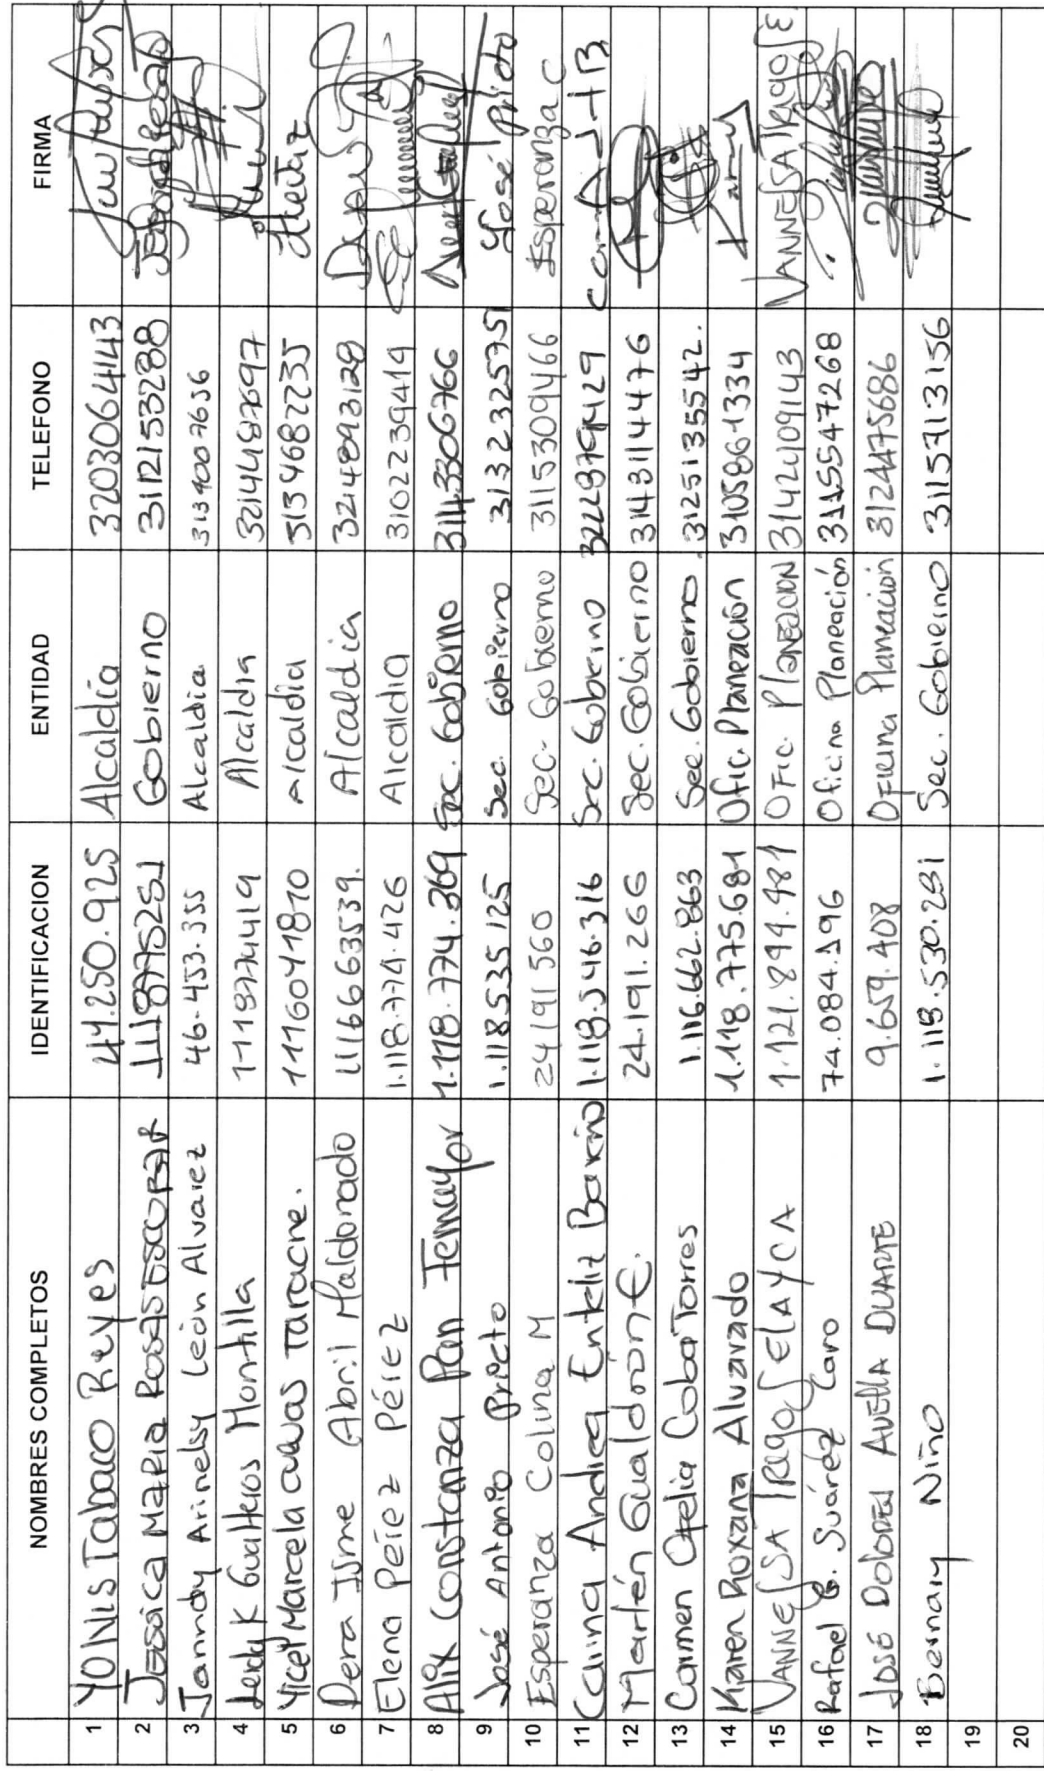 NOMBRES COMPLETOS IDENTIFICACION ENTIDAD TELEFONO FIRMA
1 YONIS Tabaco Reyes 47.250.925 Alcaldía 3203064143
2 Jessica MARIA ROSAS ESCOBAR 1118775251 Gobierno 3112153288
3 Janndy Arinelsy León Alvarez 46-453.355 Alcaldia 3134007656
4 Gualteros Montilla Alcaldia 3214487697
5 Yicel Marcela cuevas Tarache. 1116041870 Alcaldia 3134682235
6 Abril Maldonado 1116663539. Alcaldia 3214893128
7 Elena Pérez Pérez 1.118.774.426 Alcaldia 3102239414
8 Alix Constanza Pan 1.118.774.369 Sec. Gobierno 31143306766
9 José Antonio Prieto 1.118.535.125 Sec. Gobierno 3132325751 José Prieto
10 Esperanza Colina M 24191560 Sec- Gobierno 3115309466 Esperanza C
11 Carina Andrea 1.118.546.316 Sec. Gobierno 3222879429
12 Marlén Gualdrón E. 24.191.266 Sec. Gobierno 3143114476
13 Carmen Ofelia Coba Torres 1.116.662.863 Sec. Gobierno. 3125135542.
14 Karen Roxana Alvarado 1.118.775.681 Ofic. Planeación 3105861334
15 VANNESSA TRIGOS ELAYCA 1.121.894.481 OFic. PlaNEACION 3142409143 VANNESSA TRIGOS E
16 Rafael Suárez Caro 74.084.196 Oficina Planeación 3115547268
17 JOSÉ DOLORES AVELLA DUARTE 9.659.408 OFICINA Planeacion 3124475686
18 Bernary Niño 1.118.530.231 Sec. Gobierno 3115713156
19
20